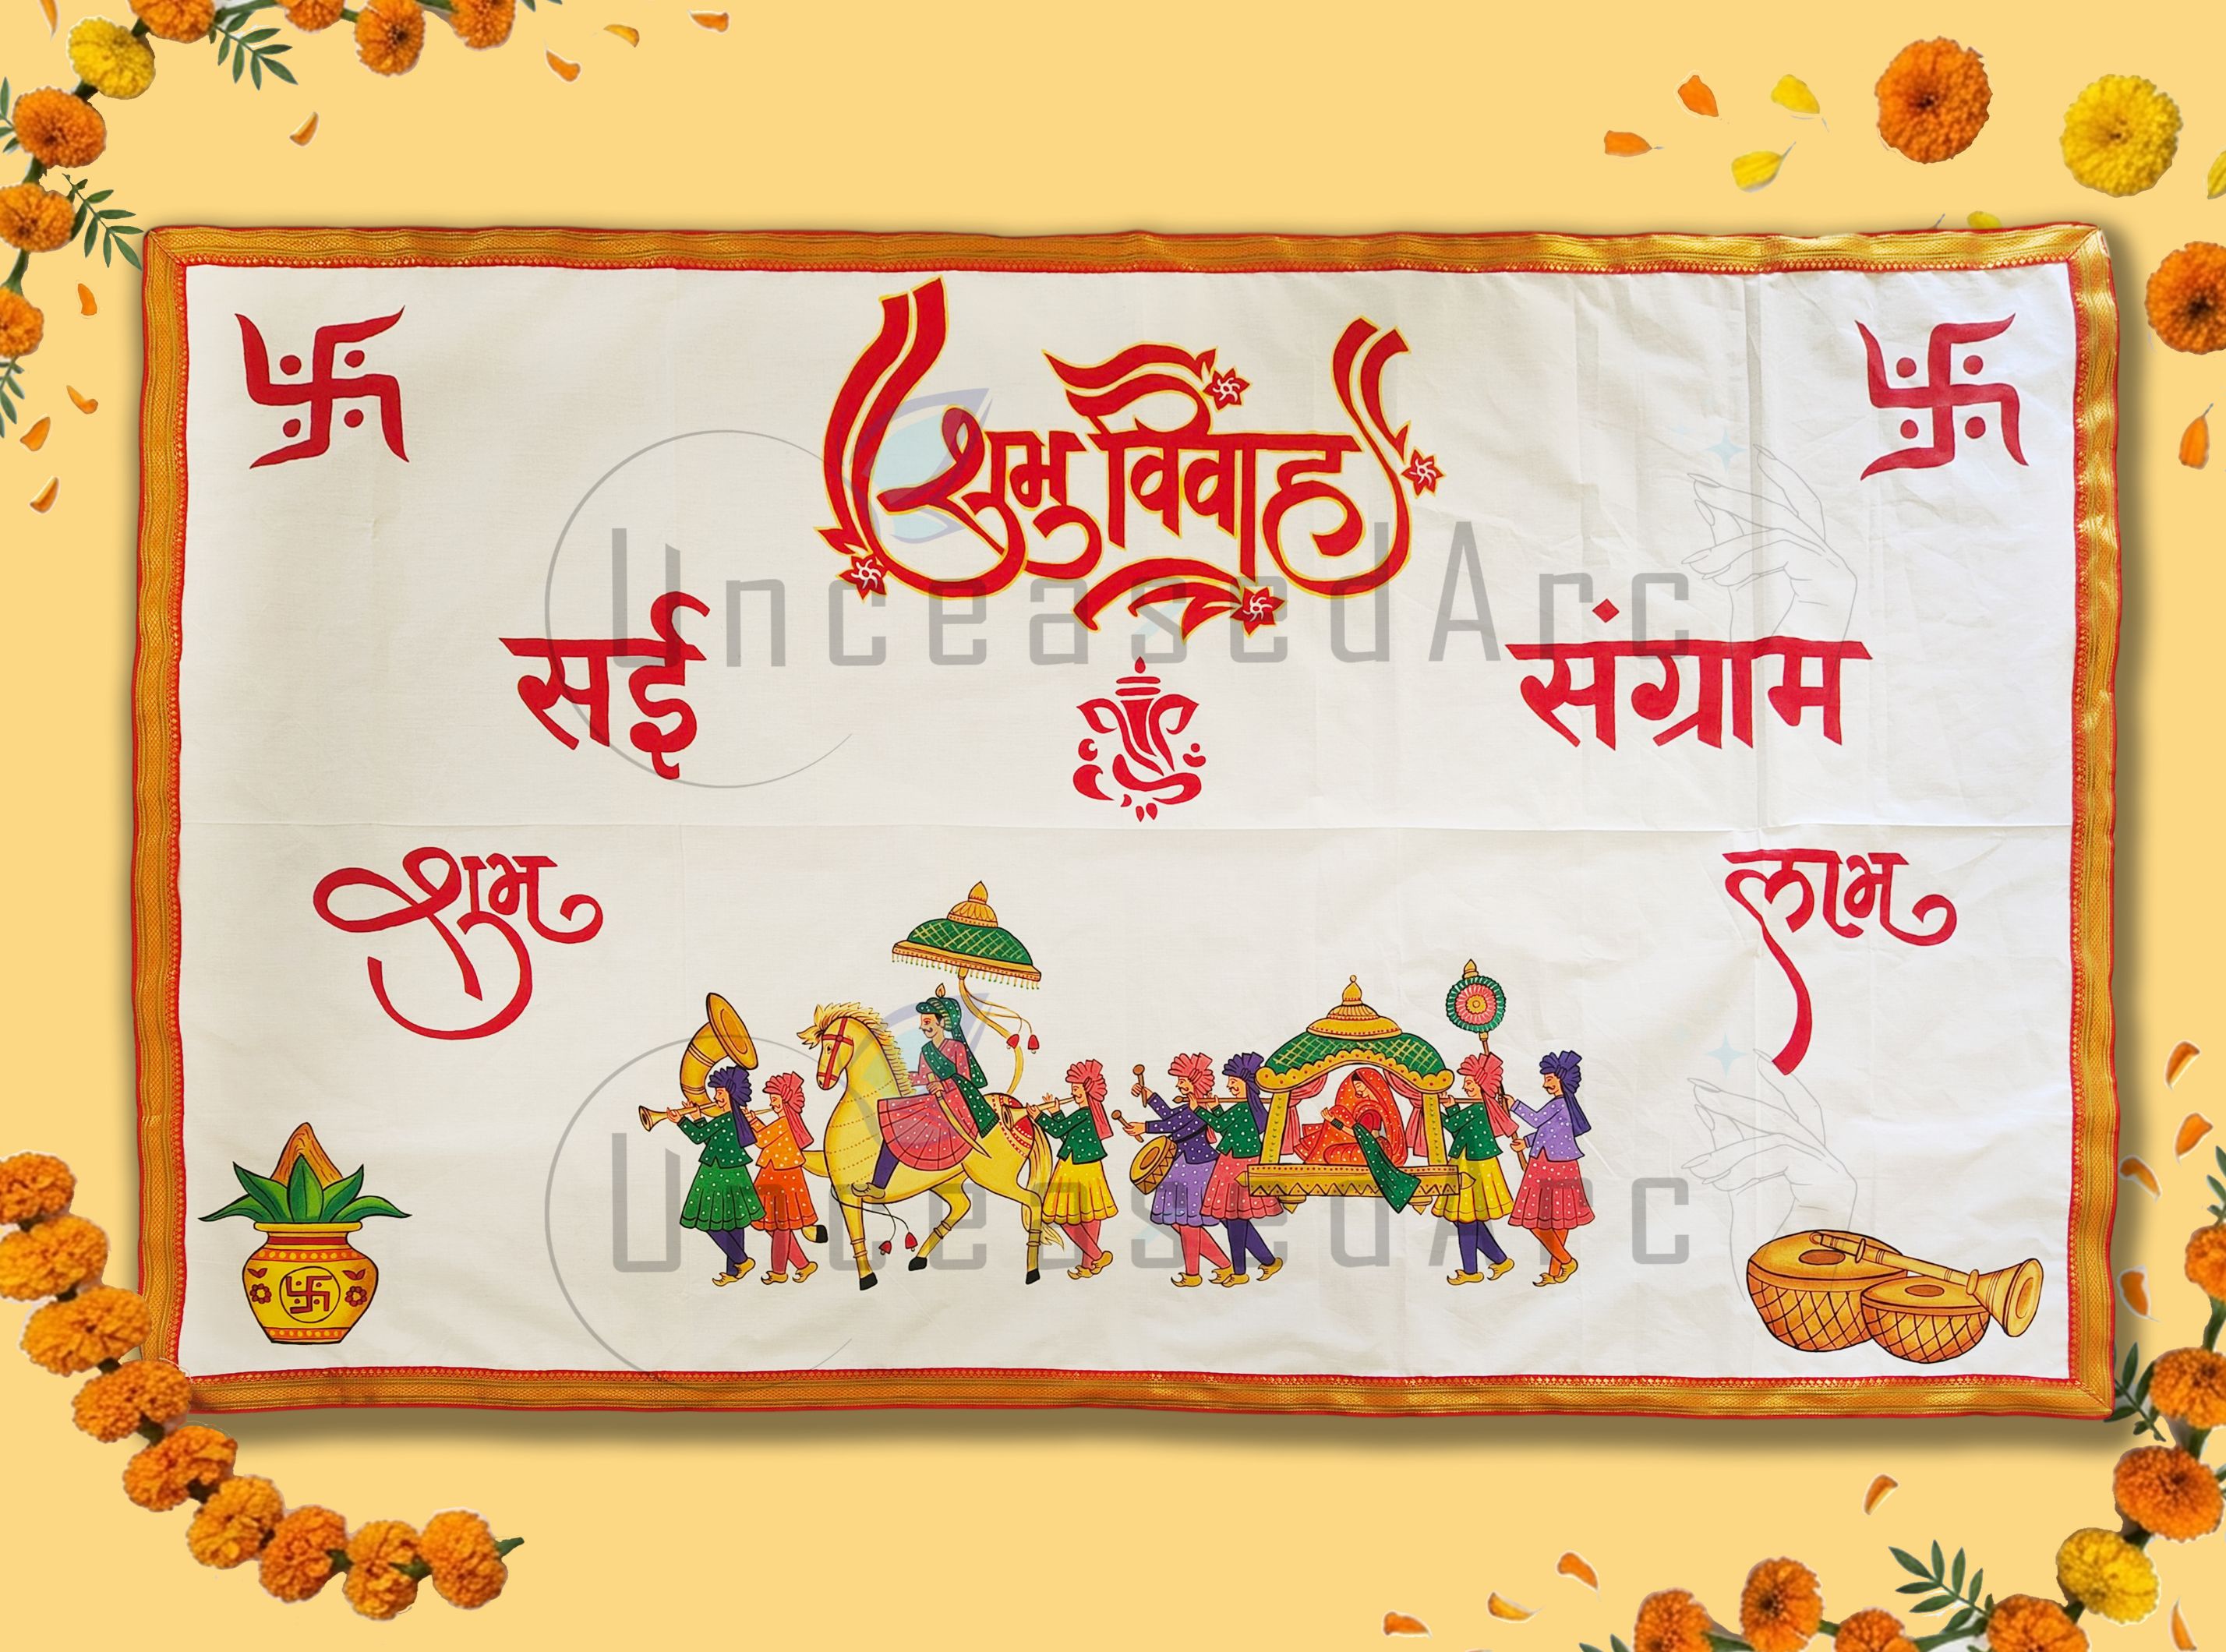 शुभ विवाह
सई संग्राम
शुभ लाभ
UnceasedArc
UnceasedArc